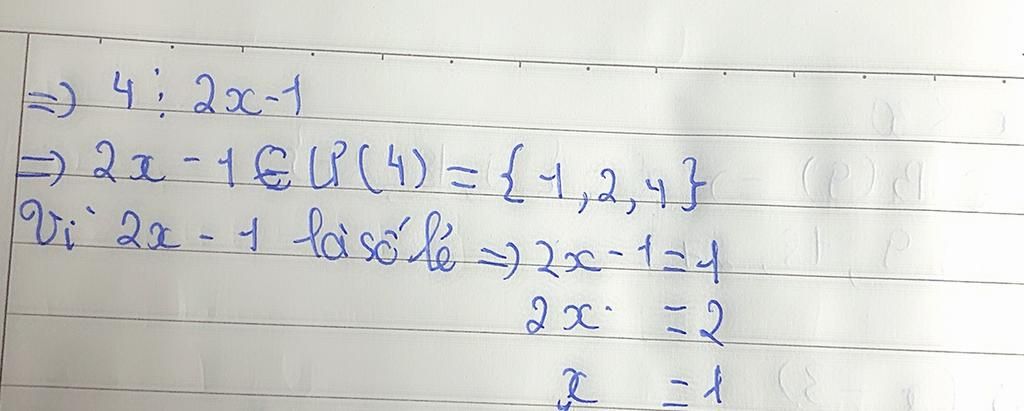 => 4 ⋮ 2x-1
=> 2x - 1 ∈ Ư(4) = {1, 2, 4}
Vì 2x - 1 là số lẻ => 2x - 1 = 1
2x = 2
x = 1